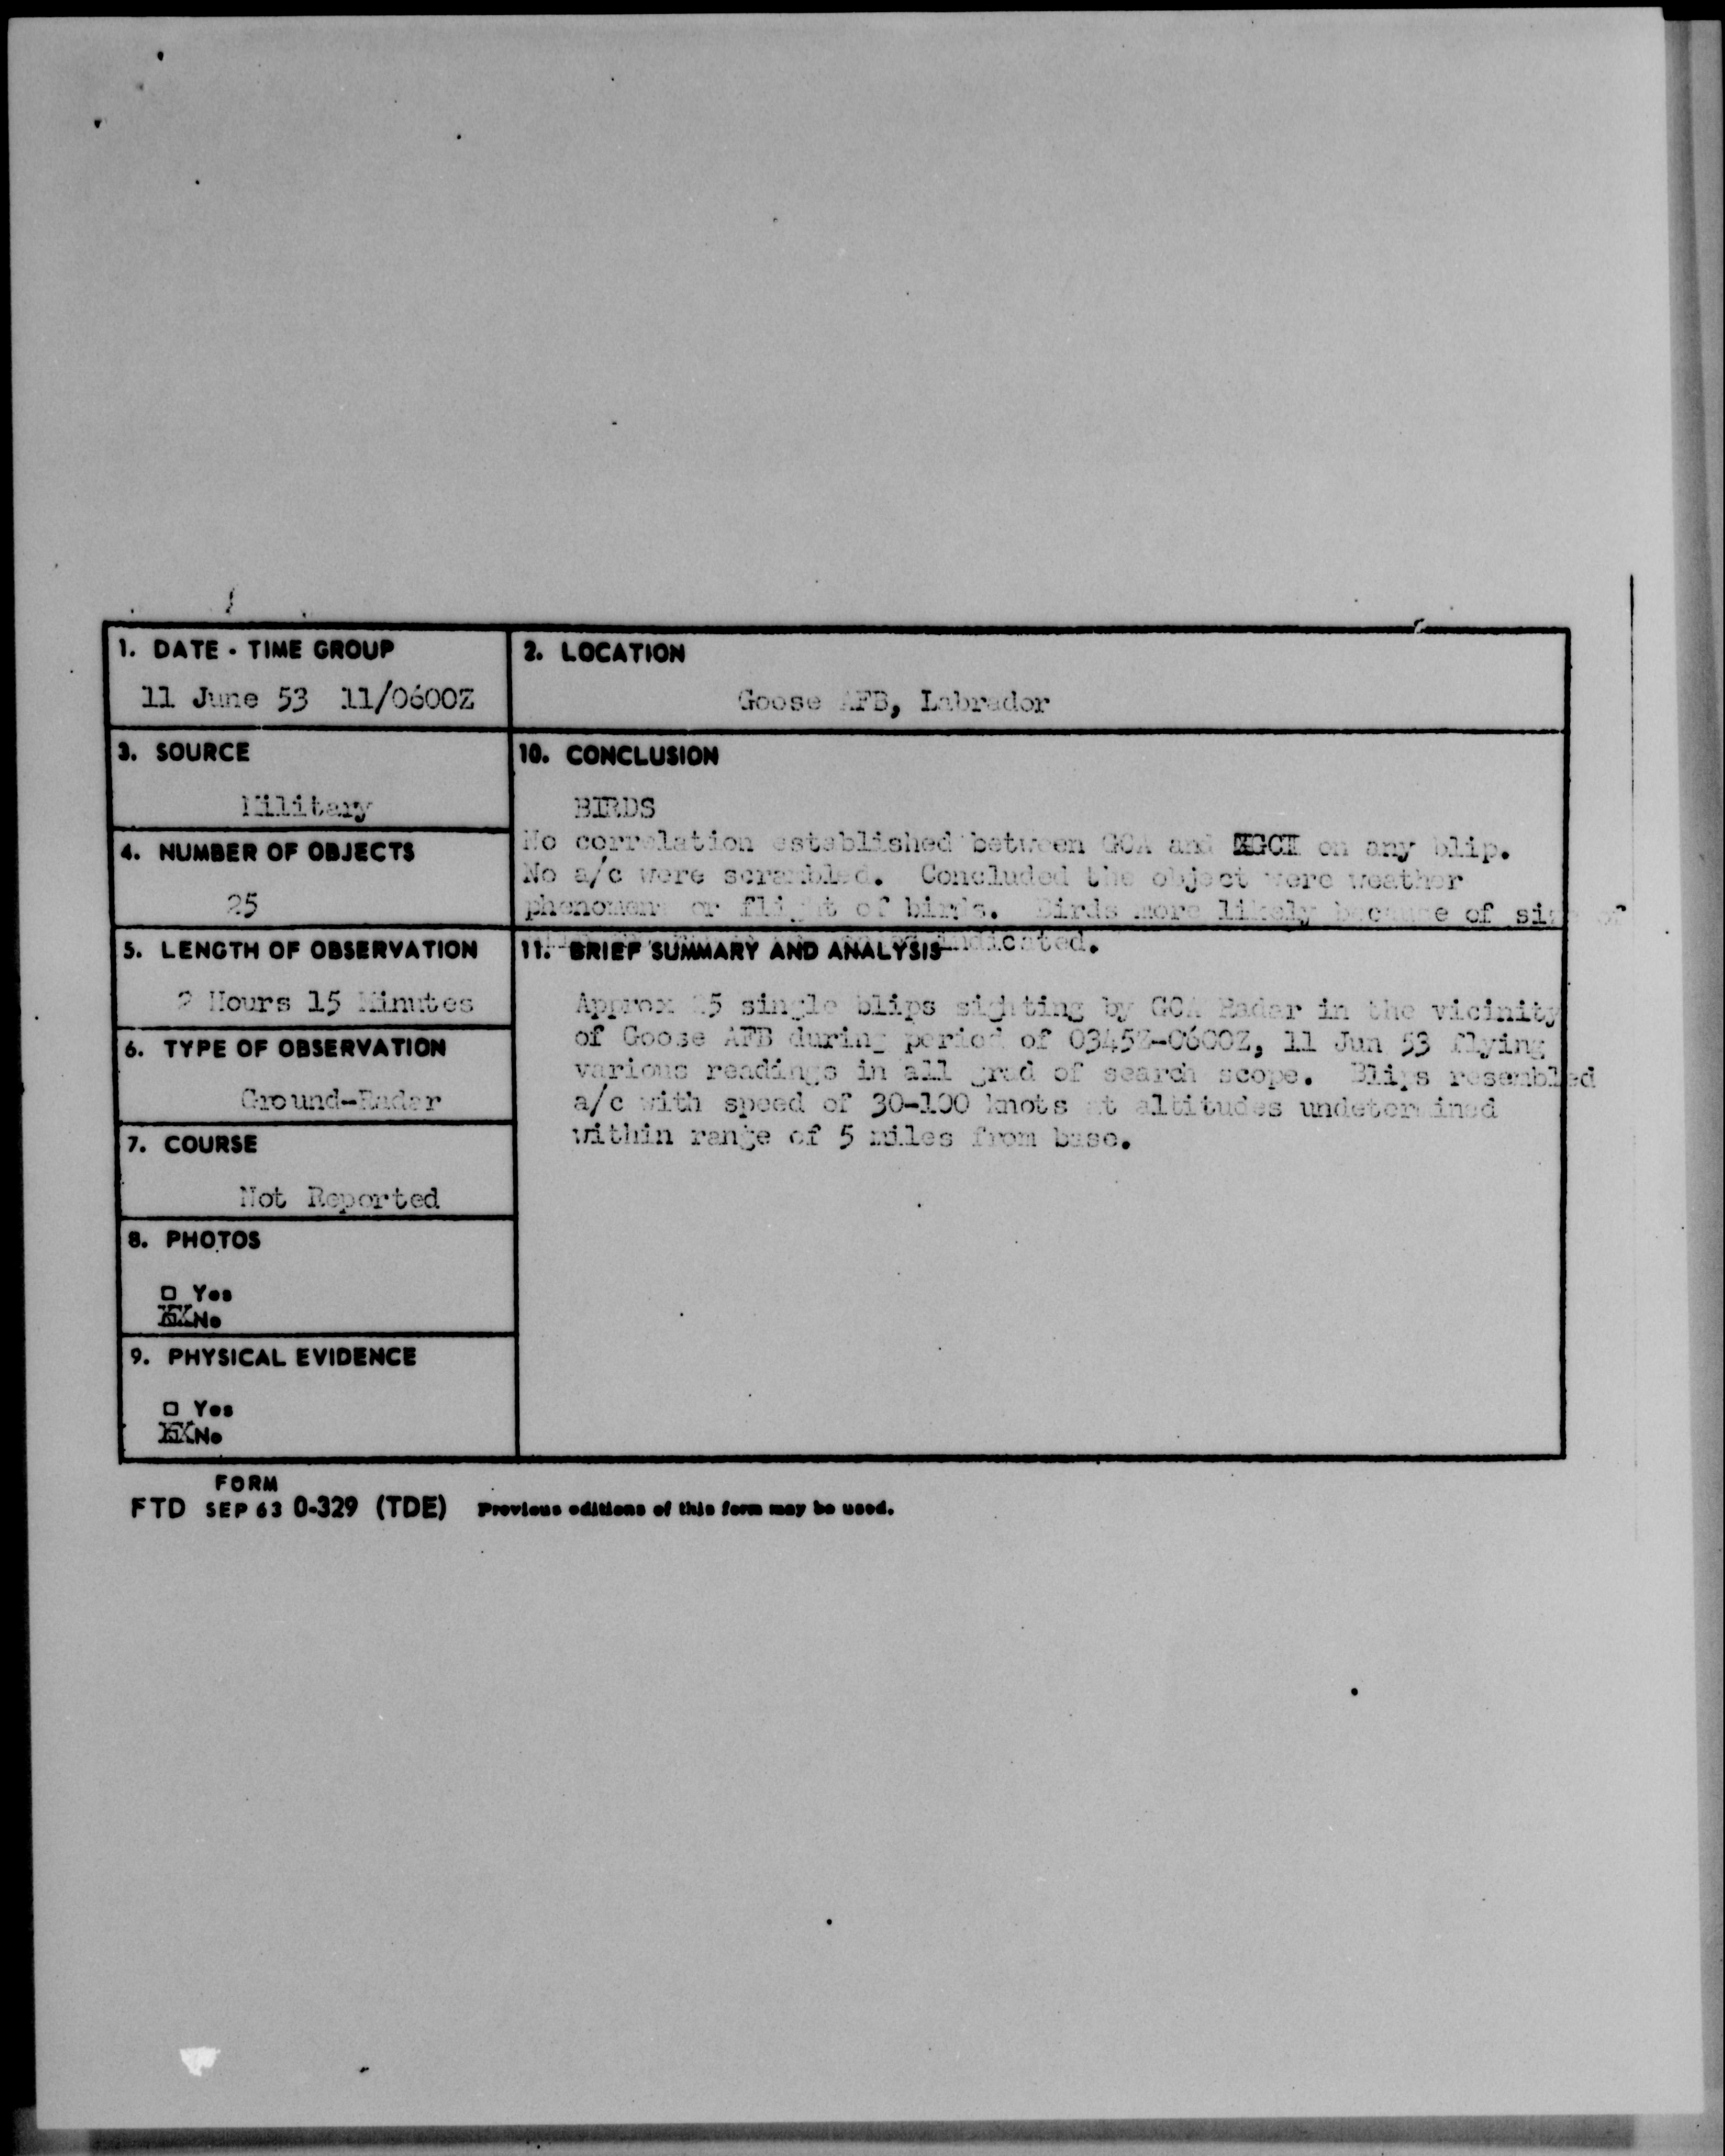 1. DATE - TIME GROUP
11 June 53 11/0600Z
2. LOCATION
Goose AFB, Labrador
3. SOURCE
Military
10. CONCLUSION
BIRDS
No correlation established between GCA and GCI on any blip.
No a/c were scrambled. Concluded the object were weather
phenomena or flight of birds. Birds more likely because of size of
indicated.
4. NUMBER OF OBJECTS
25
5. LENGTH OF OBSERVATION
2 Hours 15 Minutes
11. BRIEF SUMMARY AND ANALYSIS
Approx 25 single blips sighting by GCA Radar in the vicinity
of Goose AFB during period of 0345Z-0600Z, 11 Jun 53 flying
various readings in all grad of search scope. Blips resembled
a/c with speed of 30-100 knots at altitudes undetermined
within range of 5 miles from base.
6. TYPE OF OBSERVATION
Ground-Radar
7. COURSE
Not Reported
8. PHOTOS
□ Yes
XX No
9. PHYSICAL EVIDENCE
□ Yes
XX No
FORM
FTD SEP 63 0-329 (TDE) Previous editions of this form may be used.